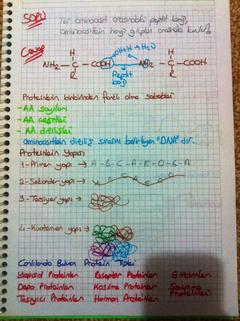 SORU
İki aminoasit arasındaki peptit bağı,
aminoasitlerin hangi grupları arasında kurulur?
Cevap
OH+H → H₂O
H H
NH₂ — C — COOH NH₂ — C — COOH
R Peptit bağı R
Proteinlerin birbirinden farklı olma sebepleri
- AA sayıları
- AA çeşitleri
- AA dizilişleri
Aminoasitlerin diziliş sırasını belirleyen "DNA" dır.
Proteinlerin Yapısı
1- Primer yapı → A - B - C - A - E - D - C - A
2- Sekonder yapı →
3- Tersiyer yapı →
4- Kuaterner yapı →
Canlılarda Bulunan Protein Tipleri
Yapısal Proteinler Reseptör Proteinler Enzimler
Depo Proteinler Kasılma Proteinler Savunma Proteinleri
Taşıyıcı Proteinler Hormon Proteinler